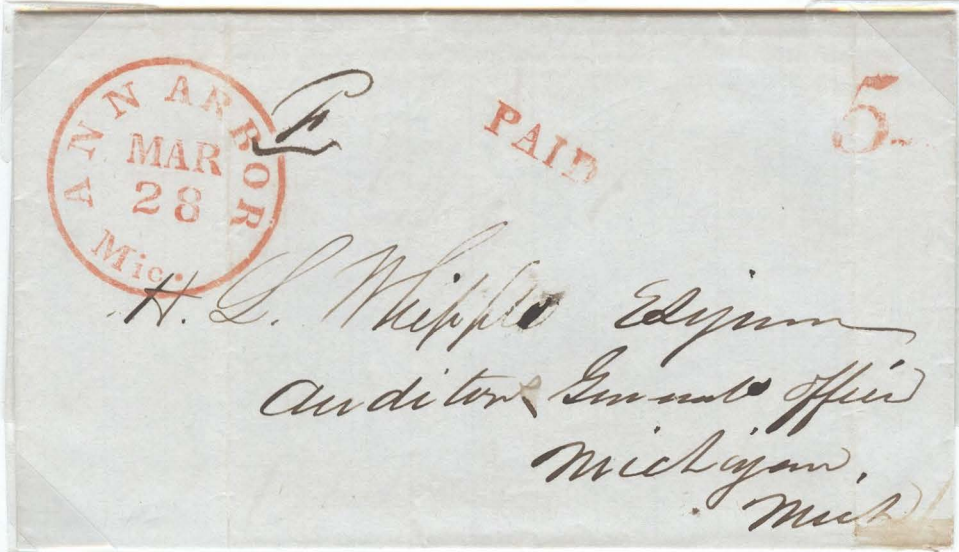 ANN ARBOR
MAR
28
Mic.
PAID
5
H. L. Whipple Esquire
Auditor Generals office
Michigan.
Mich